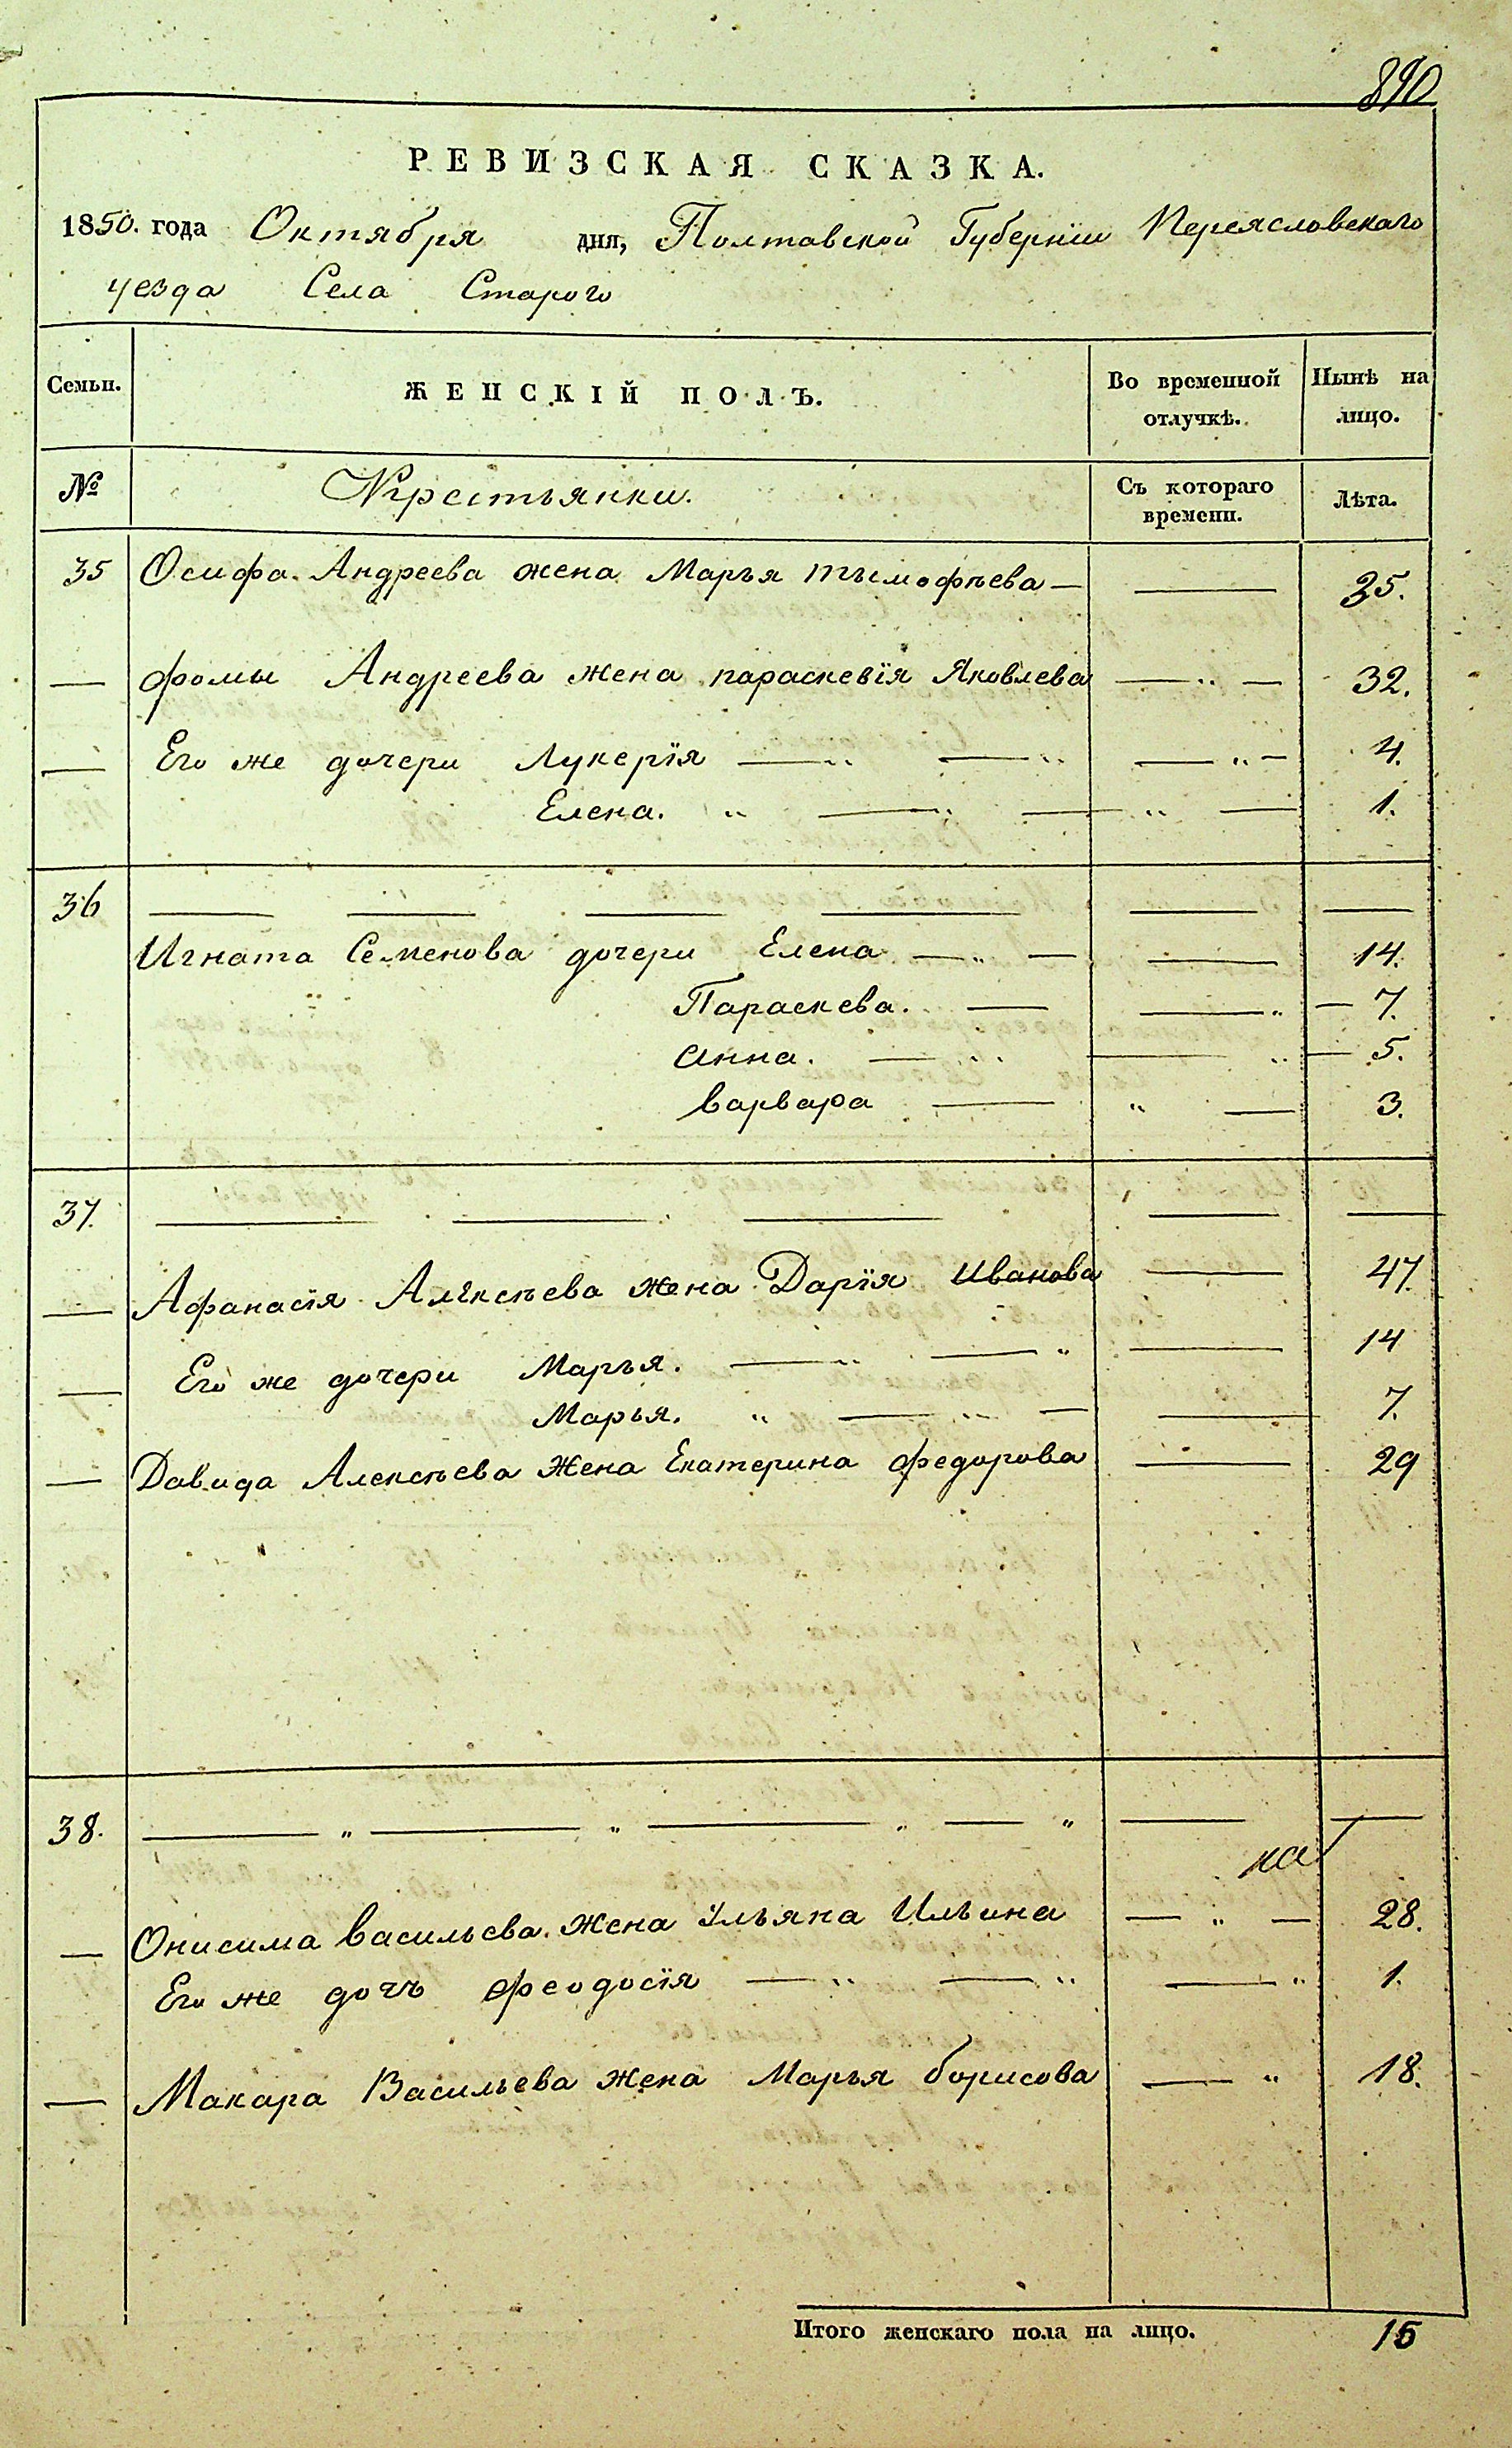 890
РЕВИЗСКАЯ СКАЗКА.
1850. года Октября дня, Полтавской Губерніи Переясловскаго
уезда Села Старого
Семьи. ЖЕНСКІЙ ПОЛЪ. Во временной отлучкѣ. Нынѣ на лицо.
№ Крестьянки. Съ котораго времени. Лѣта.
35 Осифа Андреева жена Марья тымофѣева — — 35.
— фомы Андреева жена параскевія Яковлева — „ — 32.
— Его же дочери Лукерія — „ — „ — „ — 4.
Елена. „ — „ — „ — 1.
36 — — — — — —
Игната Семенова дочери Елена — „ — — 14.
Параскева. — — „ — 7.
Анна. — „ — „ — 5.
варвара — „ — 3.
37. — — — — —
— Афанасія Алексѣева жена Дарія Иванова — 47.
— Его же дочери Марья. — „ — „ — 14
Марья. „ — „ — — 7.
— Давида Алексѣева жена Екатерина федорова — 29
38. — „ — „ — „ — „ — —
на
— Онисима васильева жена Ульяна Ильина — „ — 28.
Его же дочъ феодосія — „ — „ — „ 1.
— Макара Васильева жена Марья борисова — „ 18.
Итого женскаго пола на лицо. 15